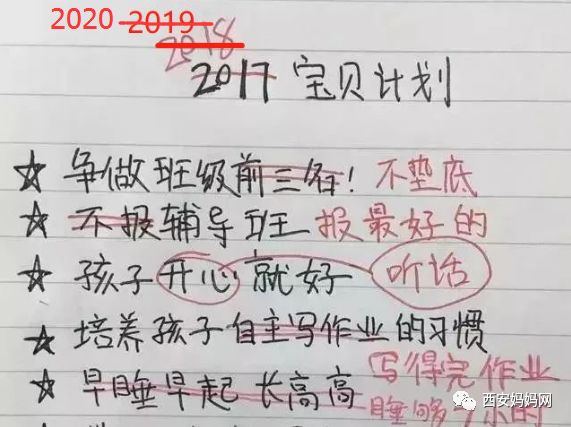 2020 2019
2018
2017 宝贝计划
★ 争做班级前三名! 不垫底
★ 不报辅导班 报最好的
★ 孩子开心就好 听话
★ 培养孩子自主写作业的习惯
写得完作业
★ 早睡早起 长高高
睡够 的
西安妈妈网